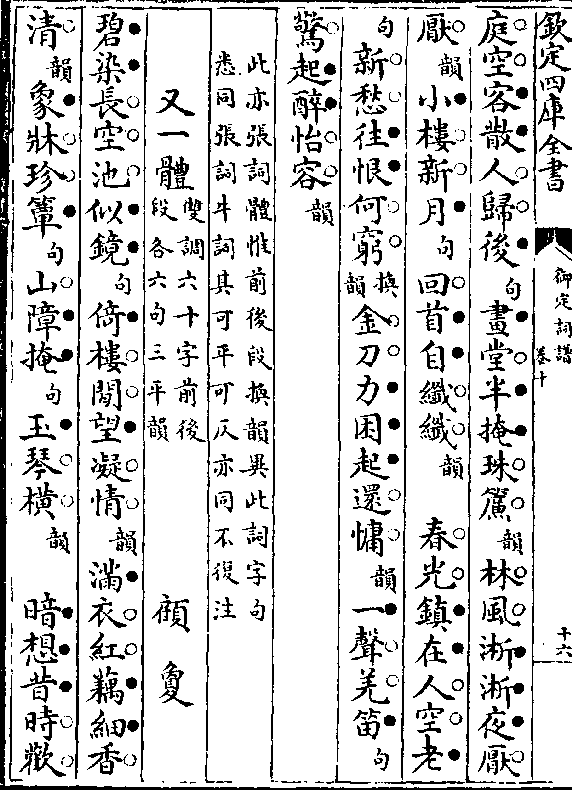 欽定四庫全書
御定詞譜
卷十
十六
庭空客散人歸後句畫堂半掩珠簾韻林風淅淅夜厭
厭韻小樓新月句回首自纖纖韻春光鎮在人空老
句新愁往恨何窮換韻金刀力困起還慵韻一聲羌笛句
驚起醉怡容韻
此亦張詞體惟前後段換韻異此詞字句
悉同張詞牛詞其可平可仄亦同不復注
又一體雙調六十字前後段各六句三平韻顧敻
碧染長空池似鏡句倚樓閒望凝情韻滿衣紅藕細香
清韻象牀珍簟句山障掩句玉琴橫韻暗想昔時歡